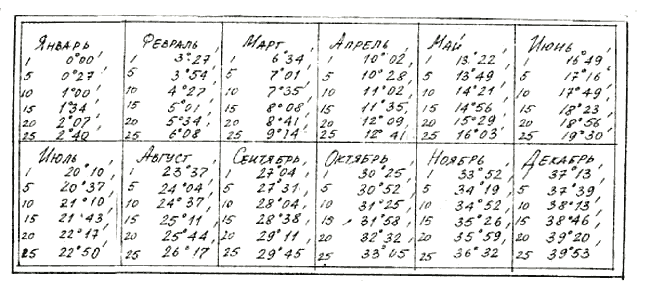 Январь Февраль Март Апрель Май Июнь
1 0°00' 1 3°27' 1 6°34' 1 10°02' 1 13°22' 1 16°49'
5 0°27' 5 3°54' 5 7°01' 5 10°28' 5 13°49' 5 17°16'
10 1°00' 10 4°27' 10 7°35' 10 11°02' 10 14°21' 10 17°49'
15 1°34' 15 5°01' 15 8°08' 15 11°35' 15 14°56' 15 18°23'
20 2°07' 20 5°34' 20 8°41' 20 12°09' 20 15°29' 20 18°56'
25 2°40' 25 6°08' 25 9°14' 25 12°41' 25 16°03' 25 19°30'
Июль Август Сентябрь Октябрь Ноябрь Декабрь
1 20°10' 1 23°37' 1 27°04' 1 30°25' 1 33°52' 1 37°13'
5 20°37' 5 24°04' 5 27°31' 5 30°52' 5 34°19' 5 37°39'
10 21°10' 10 24°37' 10 28°04' 10 31°25' 10 34°52' 10 38°13'
15 21°43' 15 25°11' 15 28°38' 15 31°58' 15 35°26' 15 38°46'
20 22°17' 20 25°44' 20 29°11' 20 32°32' 20 35°59' 20 39°20'
25 22°50' 25 26°17' 25 29°45' 25 33°05' 25 36°32' 25 39°53'